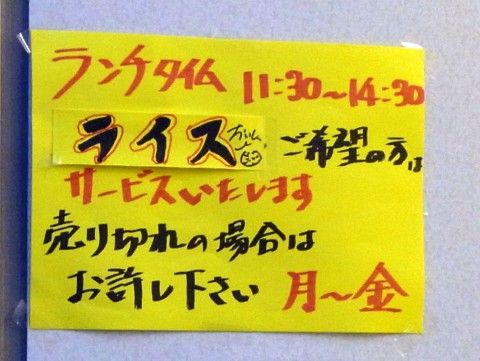 ランチタイム 11:30～14:30
ライス ご希望の方は
サービスいたします
売り切れの場合は
お許し下さい 月～金